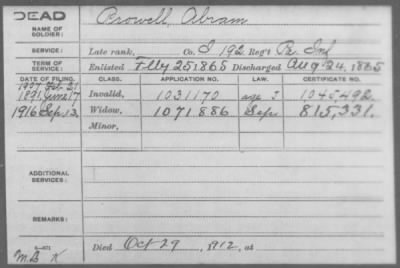 DEAD
NAME OF SOLDIER: Crowell, Abram
SERVICE: Late rank, Co. I 192 Reg't Pa. Inf
TERM OF SERVICE: Enlisted Feby 25 1865 Discharged Aug 24, 1865
DATE OF FILING. CLASS. APPLICATION NO. LAW. CERTIFICATE NO.
1907 Feb 21
1891, June 17 Invalid, 1031170 age J 1,045,492.
1916 Sep. 13. Widow, 1071886 Sep. 815,331.
Minor,
ADDITIONAL SERVICES:
REMARKS:
Died Oct 29, 1912, at
M.B K